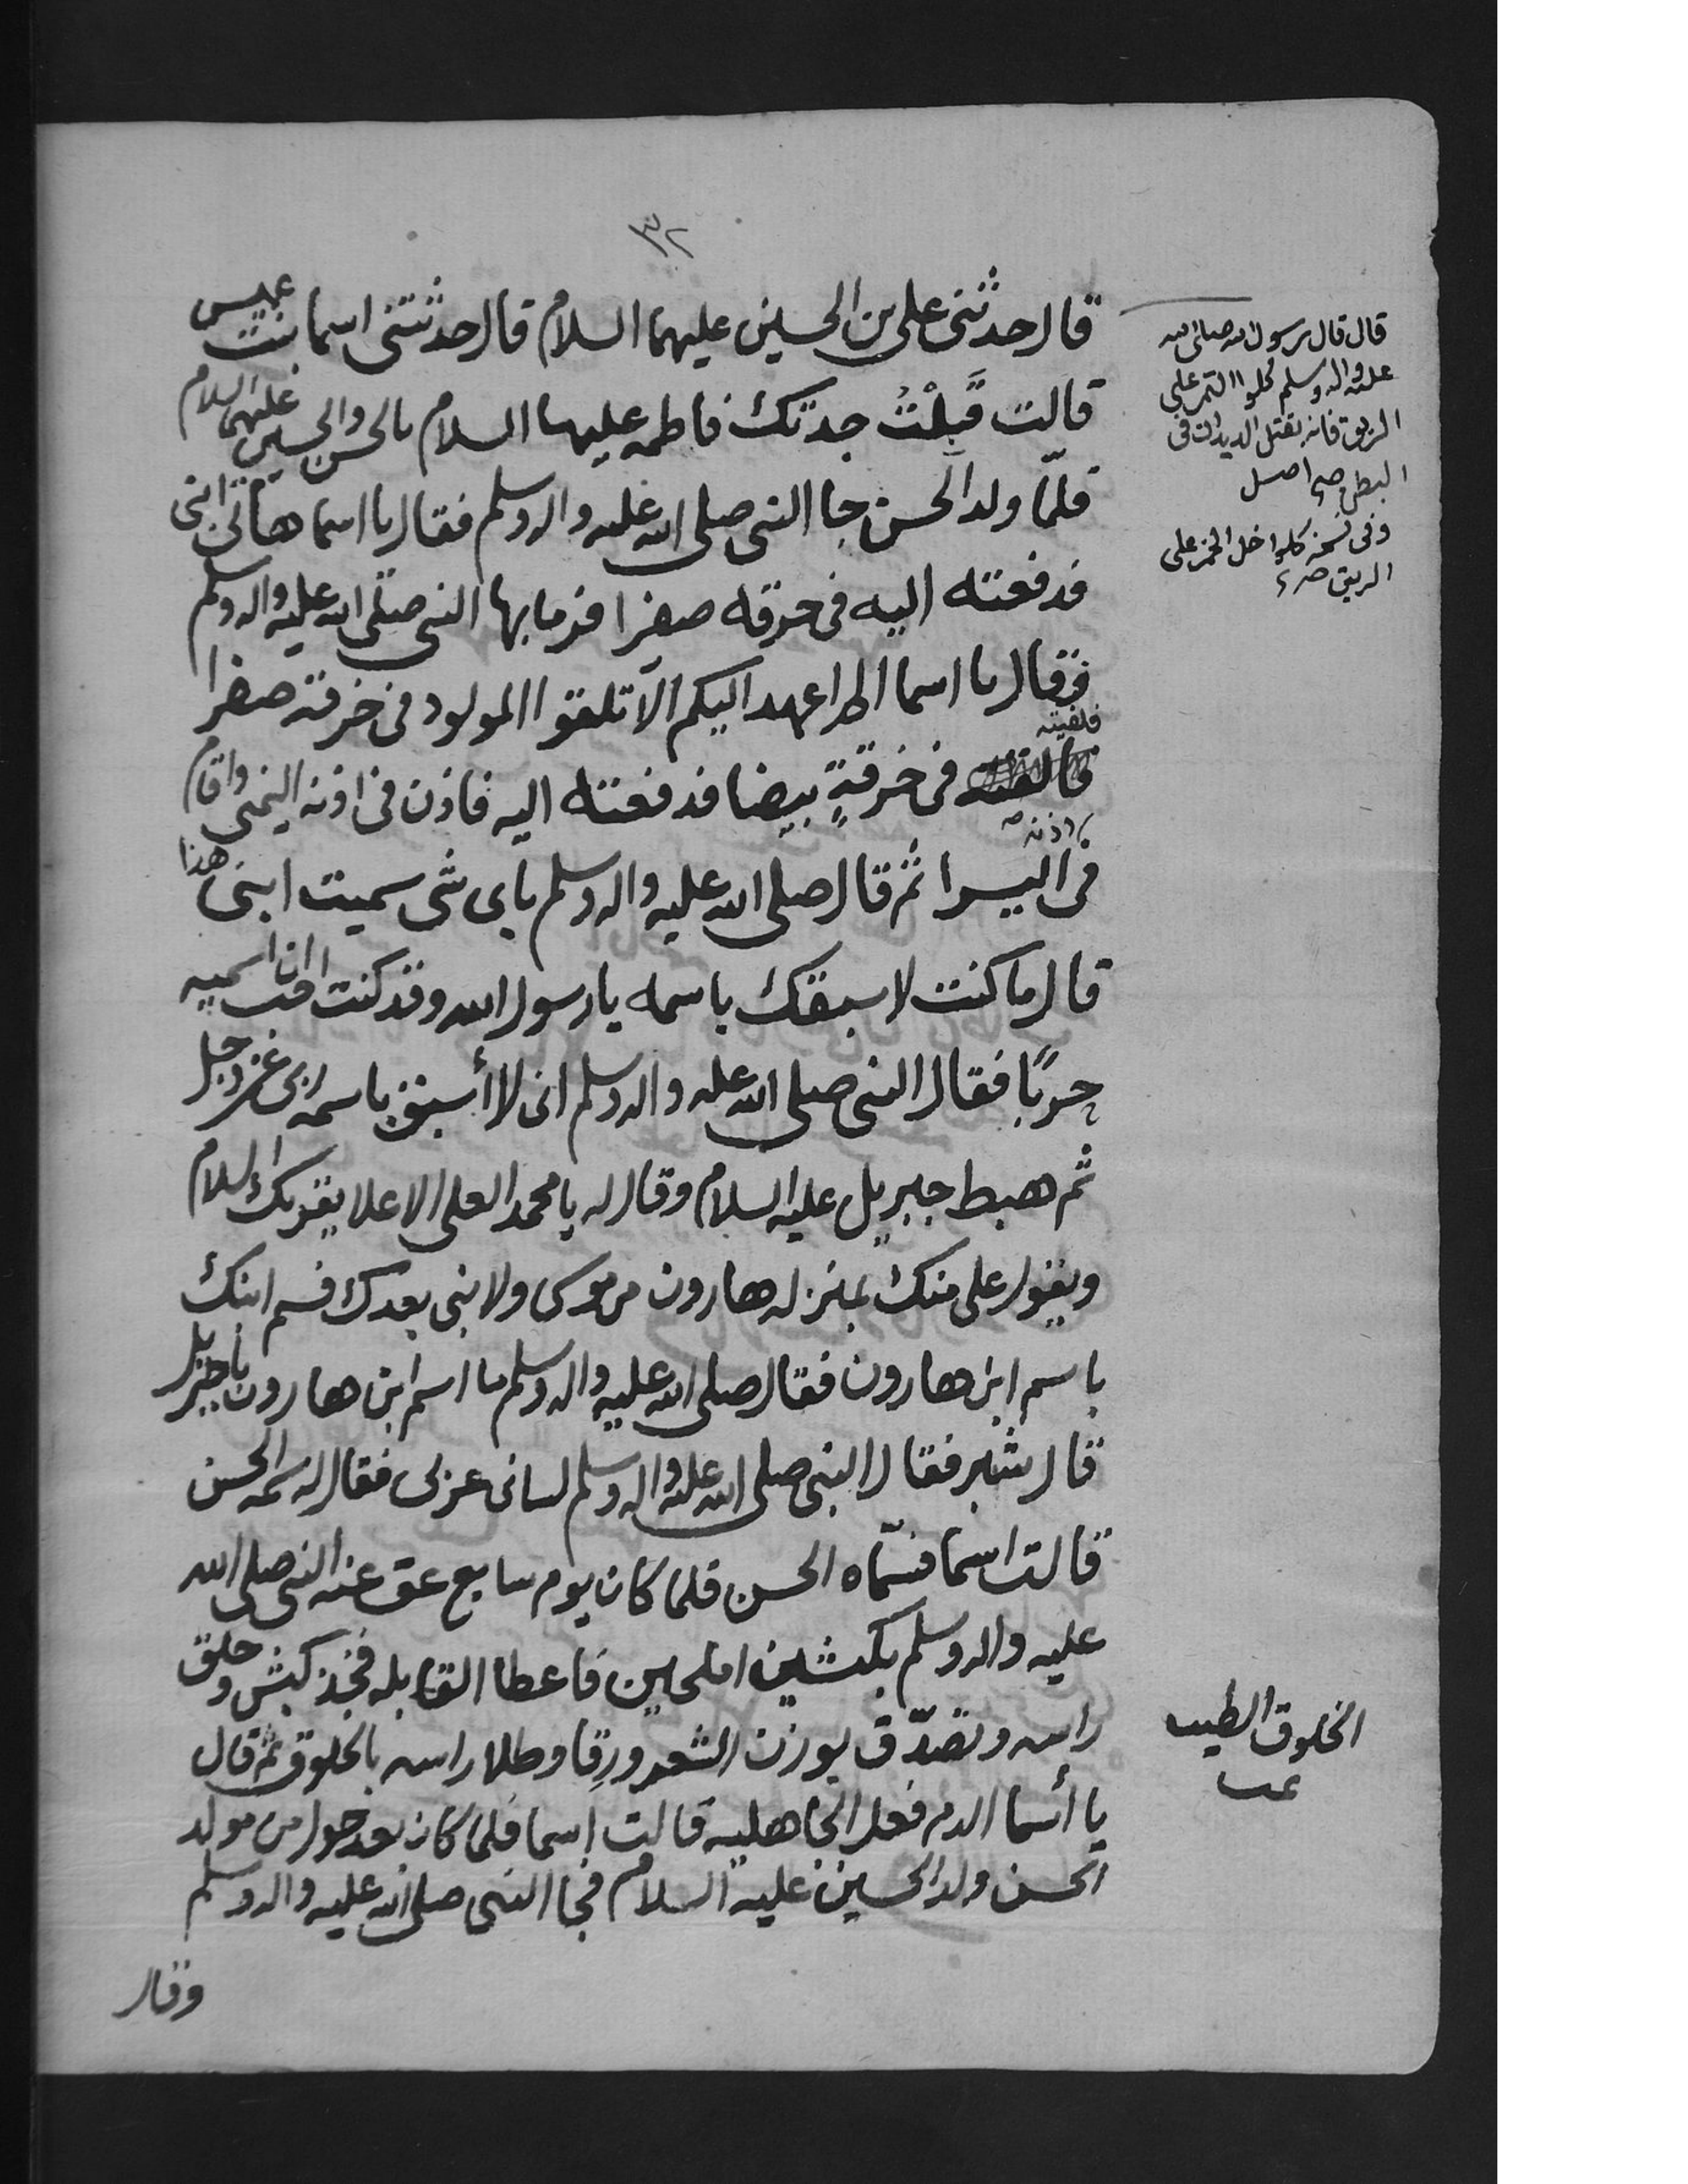 ٣٢
قال حدثنى على بن الحسين عليهما السلام قال حدثتنى اسما بنت عميس
قالت قَبِلْتُ جدتك فاطمه عليها السلام بالحسن والحسين عليهما السلام
فلمّا ولد الحسن جا النبى صلى الله عليه واله وسلم فقال يا اسما هاتى ابنى
فدفعته اليه فى خرقه صفرا فرما بها النبى صلى الله عليه واله وسلم
فقال يا اسما الم اعهد اليكم ألّا تلفوا المولود فى خرقة صفرا
فلفيته
فى خرقةٍ بيضا فدفعته اليه فاذن فى اذنه اليمنى واقام
اذنه
فى اليسرا ثم قال صلى الله عليه واله وسلم باى شى سميت ابنى هذا
قال ما كنت لاسبقك باسمه يا رسول الله وقد كنت احب ان اسميه
حربًا فقال النبى صلى الله عليه واله وسلم انى لا أسبق باسمه ربى عز وجل
ثم هبط جبريل عليه السلام وقال له يا محمد العلى الاعلا يقريك السلام
ويقول على منك بمنزله هارون من موسى ولا نبى بعدك فسم ابنك
باسم ابن هارون فقال صلى الله عليه واله وسلم ما اسم ابن هارون يا جبريل
قال شبر فقال النبى صلى الله عليه واله وسلم لسانى عربى فقال له سمه الحسن
قالت اسما فسمّاه الحسن فلما كان يوم سابع عق عنه النبى صلى الله
عليه واله وسلم بكبشين املحين فاعطا القابله فخذ كبش وحلق
راسه وتصدّق بوزن الشعر ورِقا وطلا راسه بالخلوق ثم قال
يا أسما الدم فعل الجاهليه قالت اسما فلما كان بعد حول من مولد
الحسن ولد الحسين عليه السلام فجا النبى صلى الله عليه واله وسلم
وقال
قال قال رسول الله صلى الله
عليه واله وسلم كلوا التمر على
الريق فانه يقتل الديدان فى
البطن صح اصل
وفى نسخه كلوا خل الخمر على
الريق
الخلوق الطيب
تمت